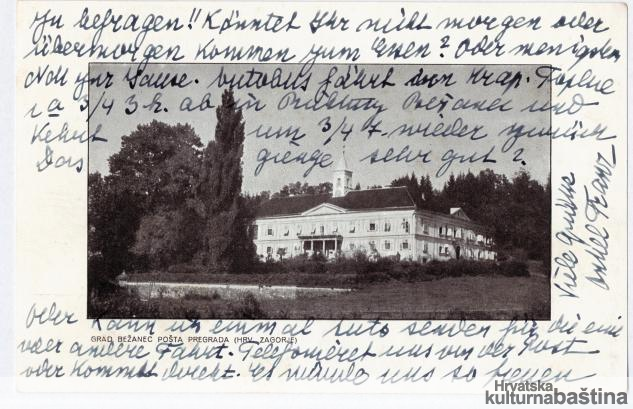 zu befragen!! Könntet Ihr nicht morgen oder
übermorgen kommen zum Essen? Oder wenigstens
zur Jause. Autobus fährt von Krap. Toplice
3/4 3 h. ab zur Richtung Bežanec und
kehrt um 3/4 7. wieder zurück
Das gienge sehr gut?
oder kann ich einmal Auto senden für die eine
oder andere Fahrt. Telefoniret uns von der Post
oder kommet direkt. Es würde uns so freuen
Viele Grüsse
Onkel Franz
GRAD BEŽANEC POŠTA PREGRADA (HRV. ZAGORJE)
Hrvatska
kulturnabaština